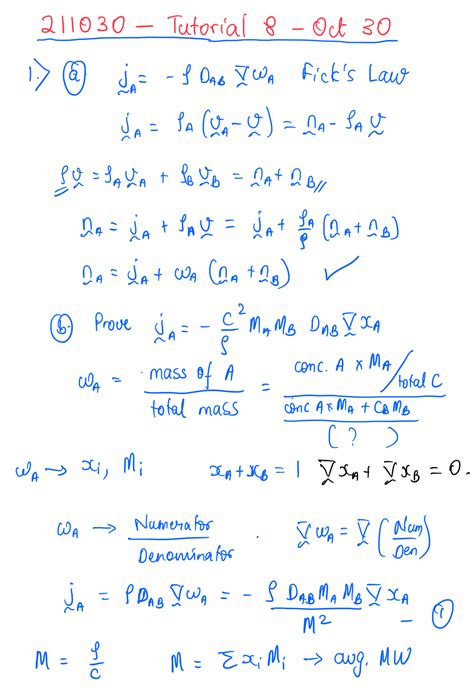 211030 - Tutorial 8 - Oct 30
1.> (a) j_A = - ρ D_AB ∇ω_A Fick's Law
j_A = ρ_A (v_A - v) = n_A - ρ_A v
ρv = ρ_A v_A + ρ_B v_B = n_A + n_B //
n_A = j_A + ρ_A v = j_A + ρ_A/ρ (n_A + n_B)
n_A = j_A + ω_A (n_A + n_B) ✓
(b) Prove j_A = - c²/ρ M_A M_B D_AB ∇x_A
ω_A = mass of A / total mass = conc. A × M_A / total C / conc A × M_A + C_B M_B / ( ? )
ω_A → x_i, M_i x_A + x_B = 1 ∇x_A + ∇x_B = 0.
ω_A → Numerator / Denominator . ∇ω_A = ∇ (Num / Den)
j_A = ρ D_AB ∇ω_A = - ρ D_AB M_A M_B / M² ∇x_A - (i)
M = ρ/c M = Σ x_i M_i → avg. MW